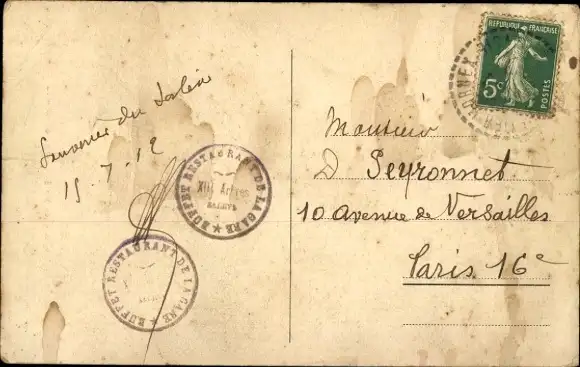 Souvenir du Salève
15-7-12
BUFFET RESTAURANT DE LA GARE
XIII Arbres
SALÈVE
BUFFET RESTAURANT DE LA GARE
REPUBLIQUE FRANÇAISE
5c
POSTES
MORNEX
Monsieur
D Peyronnet
10 avenue de Versailles
Paris 16e